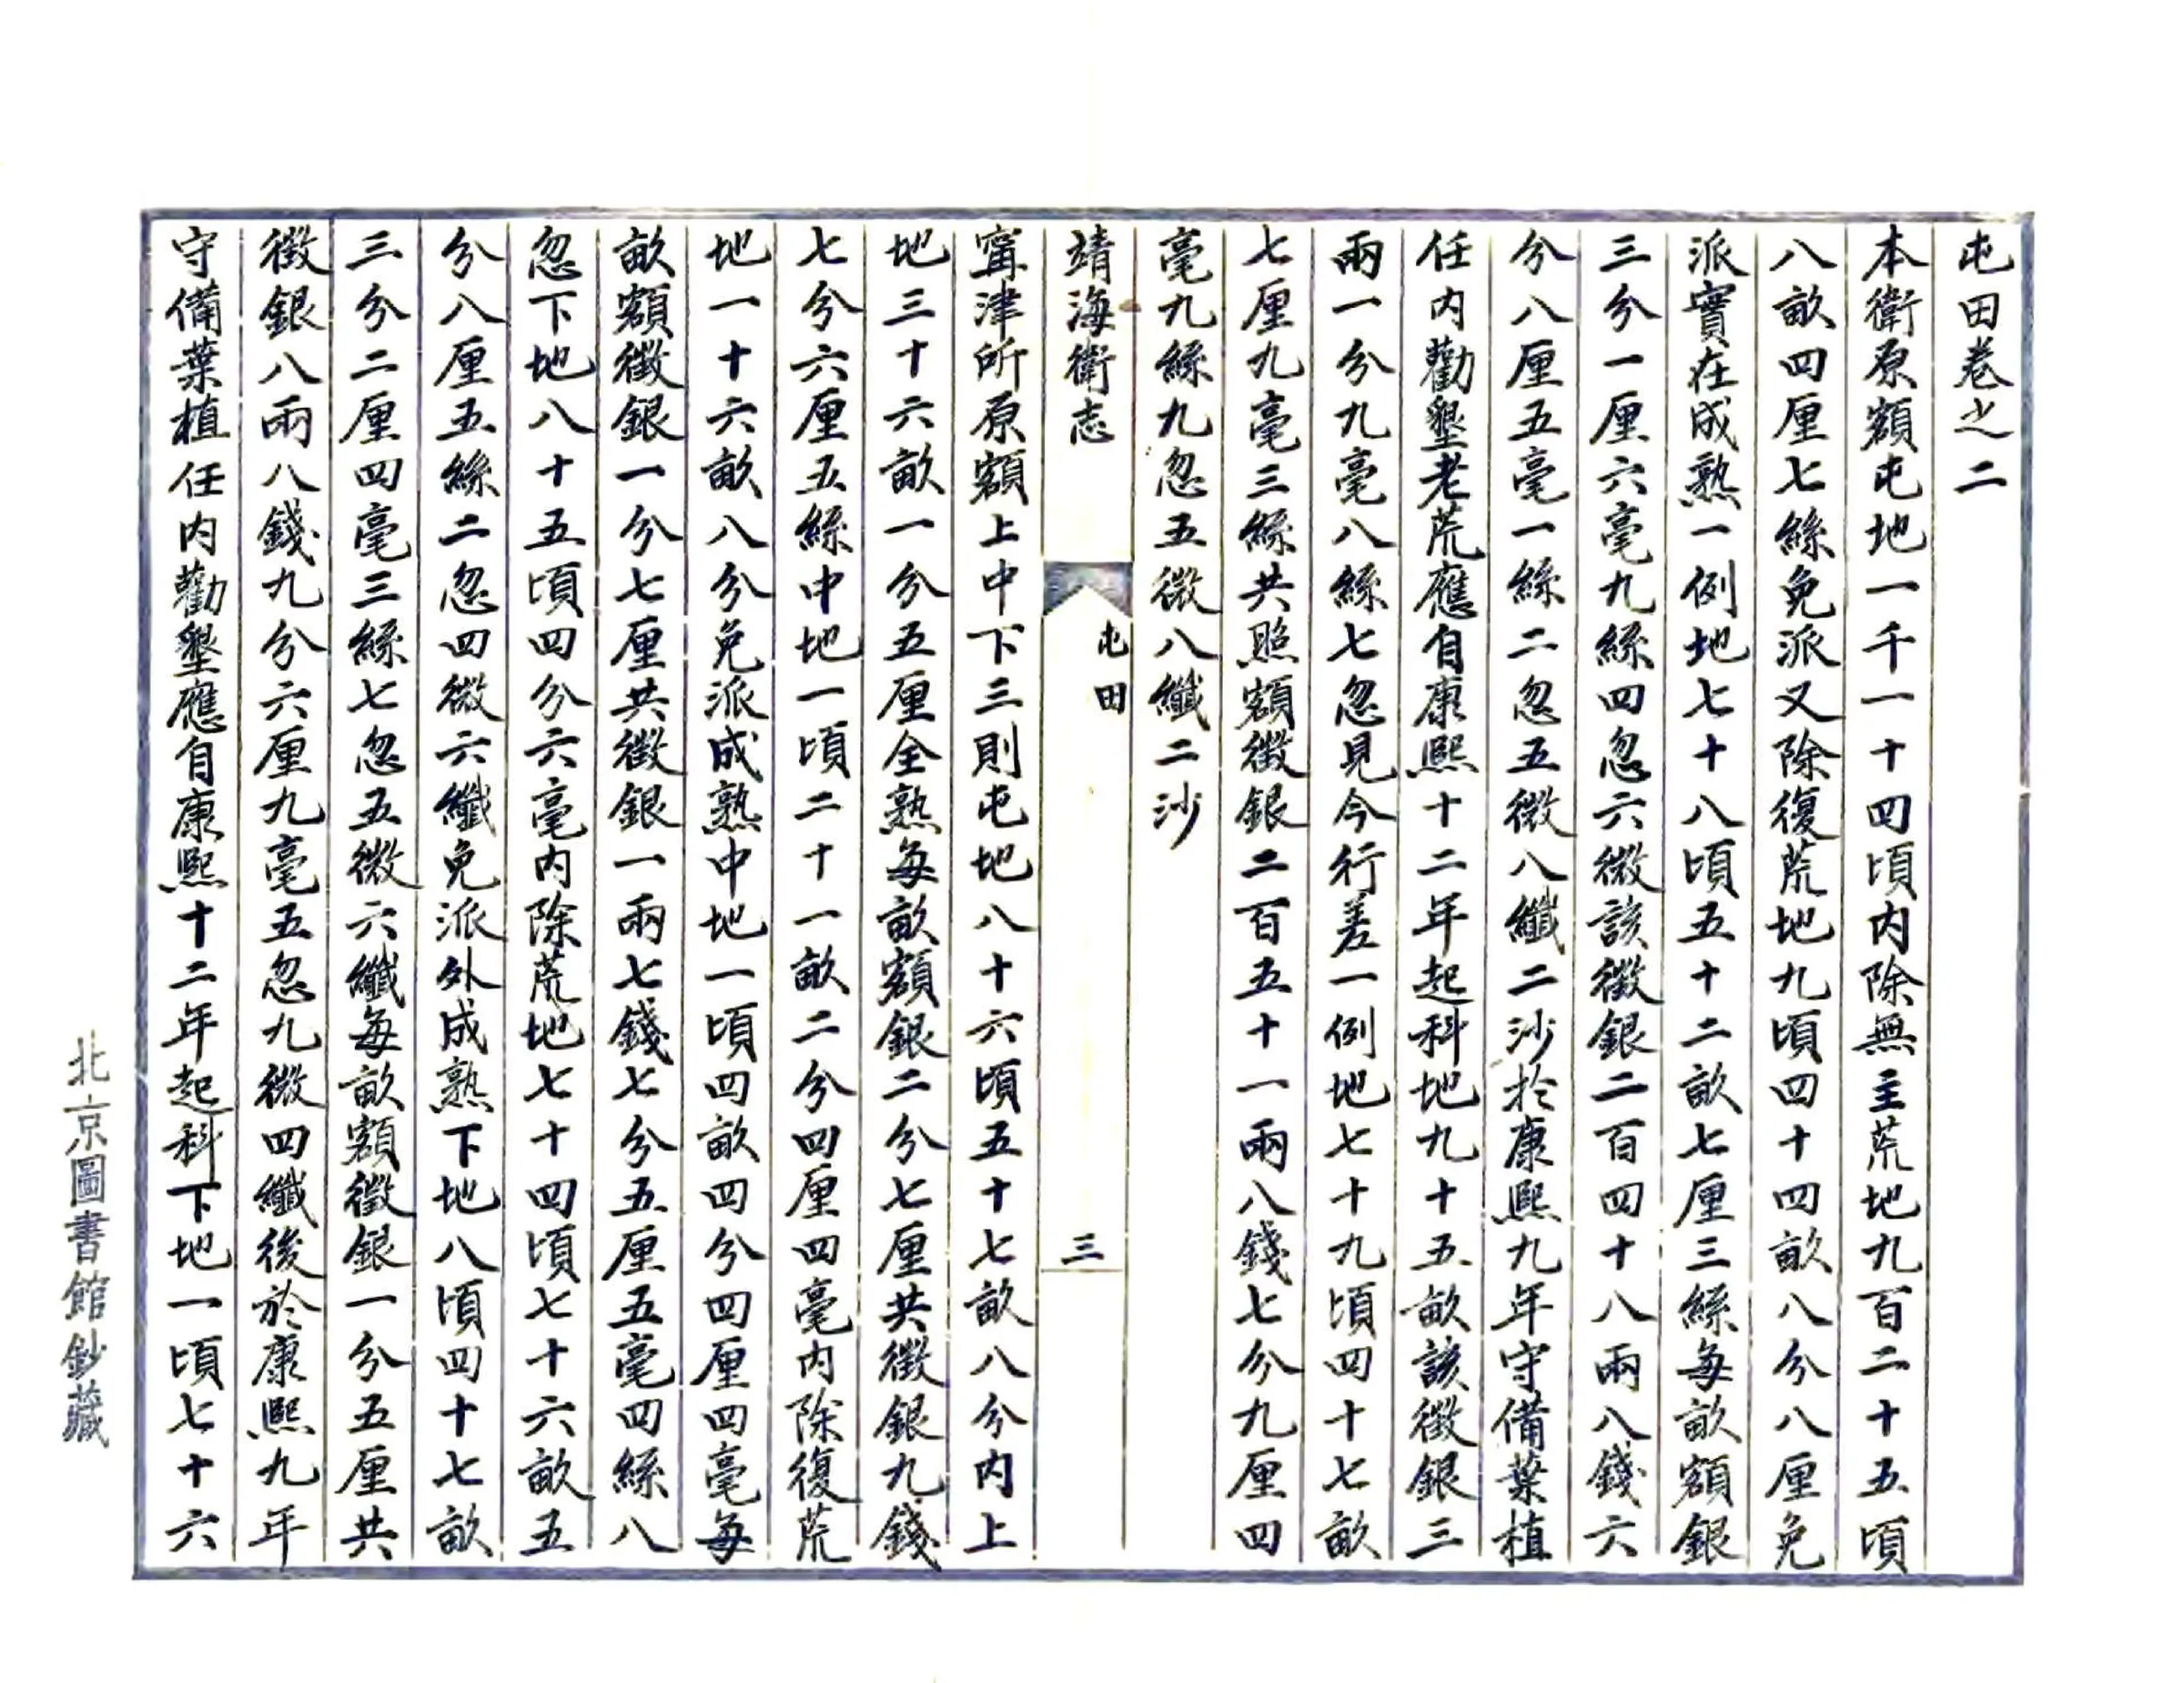 屯田卷之二
本衛原額屯地一千一十四頃内除無主荒地九百二十五頃
八畝四厘七絲免派又除復荒地九頃四十四畝八分八厘免
派實在成熟一例地七十八頃五十二畝七厘三絲每畝額銀
三分一厘六毫九絲四忽六微該徵銀二百四十八兩八錢六
分八厘五毫一絲二忽五微八纖二沙於康熙九年守備葉植
任内勸墾老荒應自康熙十二年起科地九十五畝該徵銀三
兩一分九毫八絲七忽見今行差一例地七十九頃四十七畝
七厘九毫三絲共照額徵銀二百五十一兩八錢七分九厘四
毫九絲九忽五微八纖二沙
靖海衛志 屯田 三
甯津所原額上中下三則屯地八十六頃五十七畝八分内上
地三十六畝一分五厘全熟每畝額銀二分七厘共徵銀九錢
七分六厘五絲中地一頃二十一畝二分四厘四毫内除復荒
地一十六畝八分免派成熟中地一頃四畝四分四厘四毫每
畝額徵銀一分七厘共徵銀一兩七錢七分五厘五毫四絲八
忽下地八十五頃四分六毫内除荒地七十四頃七十六畝五
分八厘五絲二忽四微六纖免派外成熟下地八頃四十七畝
三分二厘四毫三絲七忽五微六纖每畝額徵銀一分五厘共
徵銀八兩八錢九分六厘九毫五忽九微四纖後於康熙九年
守備葉植任内勸墾應自康熙十二年起科下地一頃七十六
北京圖書館鈔藏